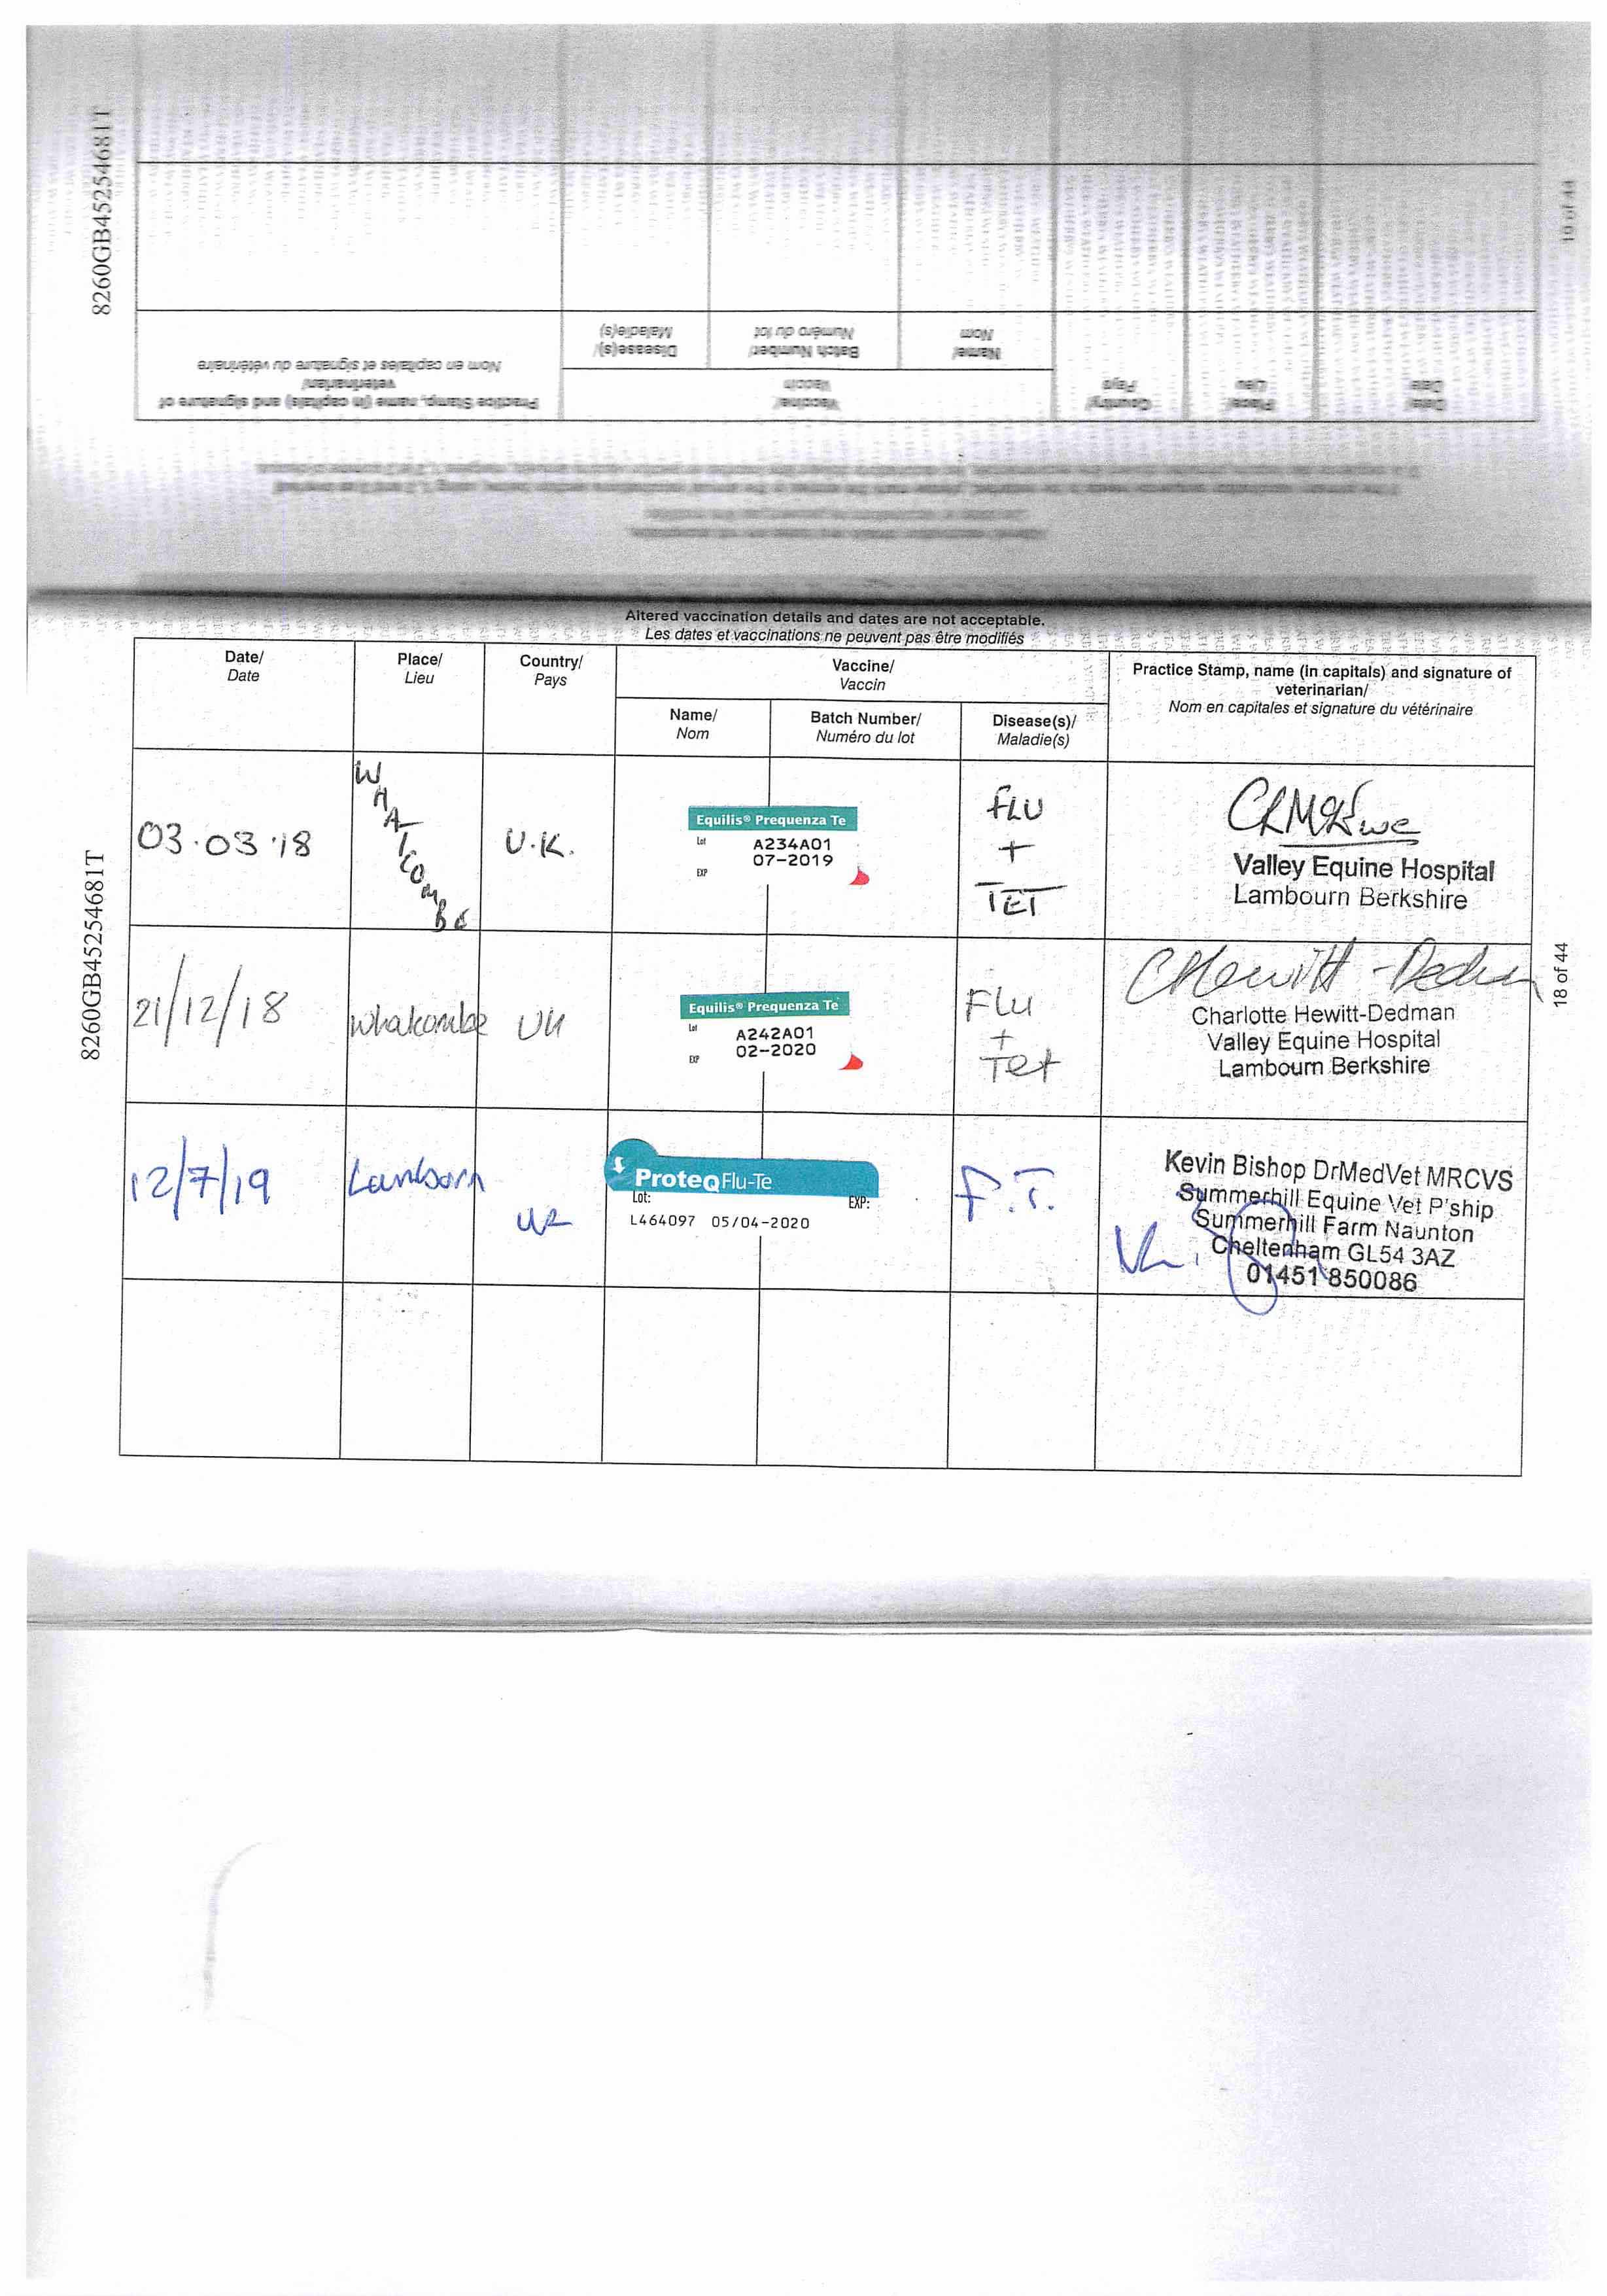 8260GB45254681T
Practice Stamp, name (in capitals) and signature of
veterinarian/
Nom en capitales et signature du vétérinaire
Vaccine/
Vaccin
Disease(s)/
Maladie(s)
Batch Number/
Numéro du lot
Name/
Nom
Country/
Pays
Place/
Lieu
Date/
Date
Altered vaccination details and dates are not acceptable.
Les dates et vaccinations ne peuvent pas être modifiés
Date/
Date
Place/
Lieu
Country/
Pays
Vaccine/
Vaccin
Name/
Nom
Batch Number/
Numéro du lot
Disease(s)/
Maladie(s)
Practice Stamp, name (in capitals) and signature of
veterinarian/
Nom en capitales et signature du vétérinaire
03.03.18
WHATCOMBE
U.K.
Equilis® Prequenza Te
Lot A234A01
EXP 07-2019
FLU
+
TET
Valley Equine Hospital
Lambourn Berkshire
21/12/18
Whatcombe
UK
Equilis® Prequenza Te
Lot A242A01
EXP 02-2020
Flu
+
Tet
CHewitt-Dedman
Charlotte Hewitt-Dedman
Valley Equine Hospital
Lambourn Berkshire
12/7/19
Lamborn
UK
ProteqFlu-Te
Lot: EXP:
L464097 05/04-2020
F.T.
Kevin Bishop DrMedVet MRCVS
Summerhill Equine Vet P'ship
Summerhill Farm Naunton
Cheltenham GL54 3AZ
01451 850086
8260GB45254681T
18 of 44